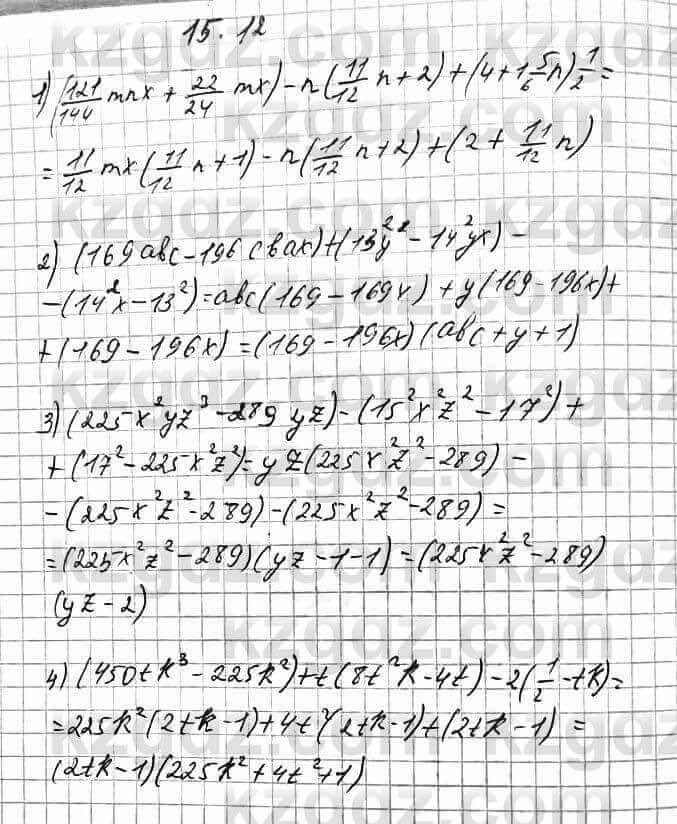 15.12
1) (121/144 mnx + 22/24 mx) - n(11/12 n + 2) + (4 + 1 5/6 n) 1/2 =
= 11/12 mx(11/12 n + 1) - n(11/12 n + 2) + (2 + 11/12 n)
2) (169abc - 196cbax) + (13²y - 14²yx) -
- (14²x - 13²) = abc(169 - 169x) + y(169 - 196x) +
+ (169 - 196x) = (169 - 196x)(abc + y + 1)
3) (225x²yz³ - 289yz) - (15²x²z² - 17²) +
+ (17² - 225x²z²) = yz(225x²z² - 289) -
- (225x²z² - 289) - (225x²z² - 289) =
= (225x²z² - 289)(yz - 1 - 1) = (225x²z² - 289)
(yz - 2)
4) (450tk³ - 225k²) + t(8t²k - 4t) - 2(1/2 - tk) =
= 225k²(2tk - 1) + 4t²(2tk - 1) + (2tk - 1) =
(2tk - 1)(225k² + 4t² + 1)
kzgdz.com